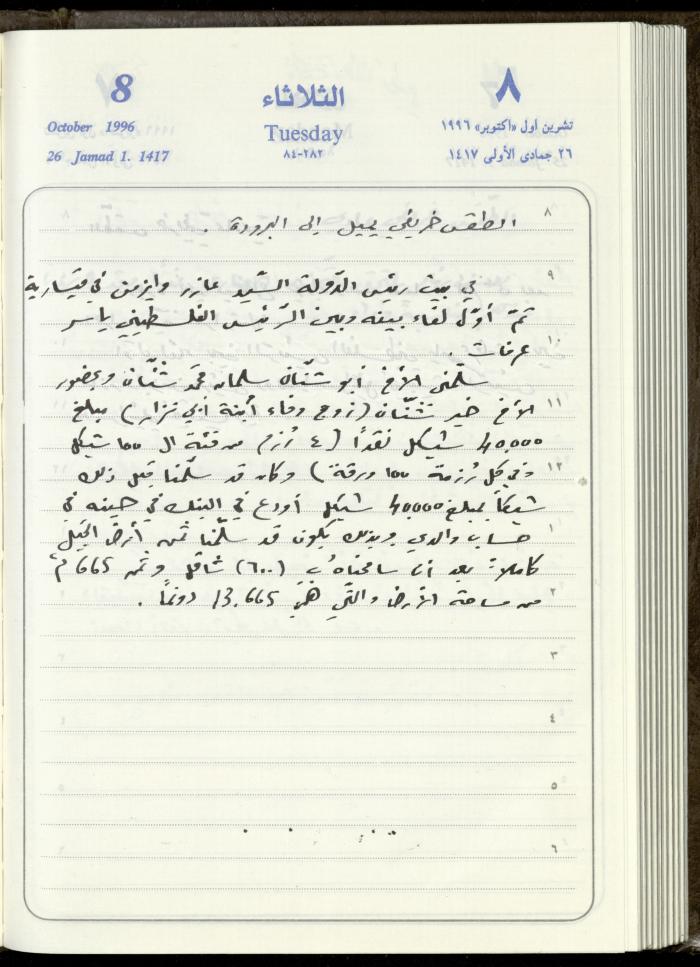 8
الثلاثاء
٨
October 1996
Tuesday
تشرين اول «اكتوبر» ١٩٩٦
26 Jamad 1. 1417
٢٨٢-٨٤
٢٦ جمادى الأولى ١٤١٧
٨
الطقس خريفي يميل إلى البرودة .
٩
في بيت رئيس الدولة السيد عازر وايزمن في قيسارية
تمّ أوّل لقاء بينه وبين الرّئيس الفلسطيني ياسر
١٠
عرفات
سلّمني الأخ أبو شنّان سلمان محمد شنّان وبحضور
١١
الأخ خير شنّان (زوج وفاء أبنة أبي نزار) مبلغ
40,000 شيكل نقداً (٤ رُزم من فئة ال ١٠٠ شيكل
١٢
وفي كل رُزمة ١٠٠ ورقة) وكان قد سلّمنا قبل ذلك
شيكاً بمبلغ 40,000 شيكل أودع في البنك في حينه في
١
حساب والدي وبذلك يكون قد سلّمنا ثمن أرض الجبل
كاملاً بعد أن سامحناه ب (٦٠٠) شاقل وثمن 665 م٢
٢
من مساحة الأرض والتي هي 13.665 دونماً .
٣
٤
٥
٦